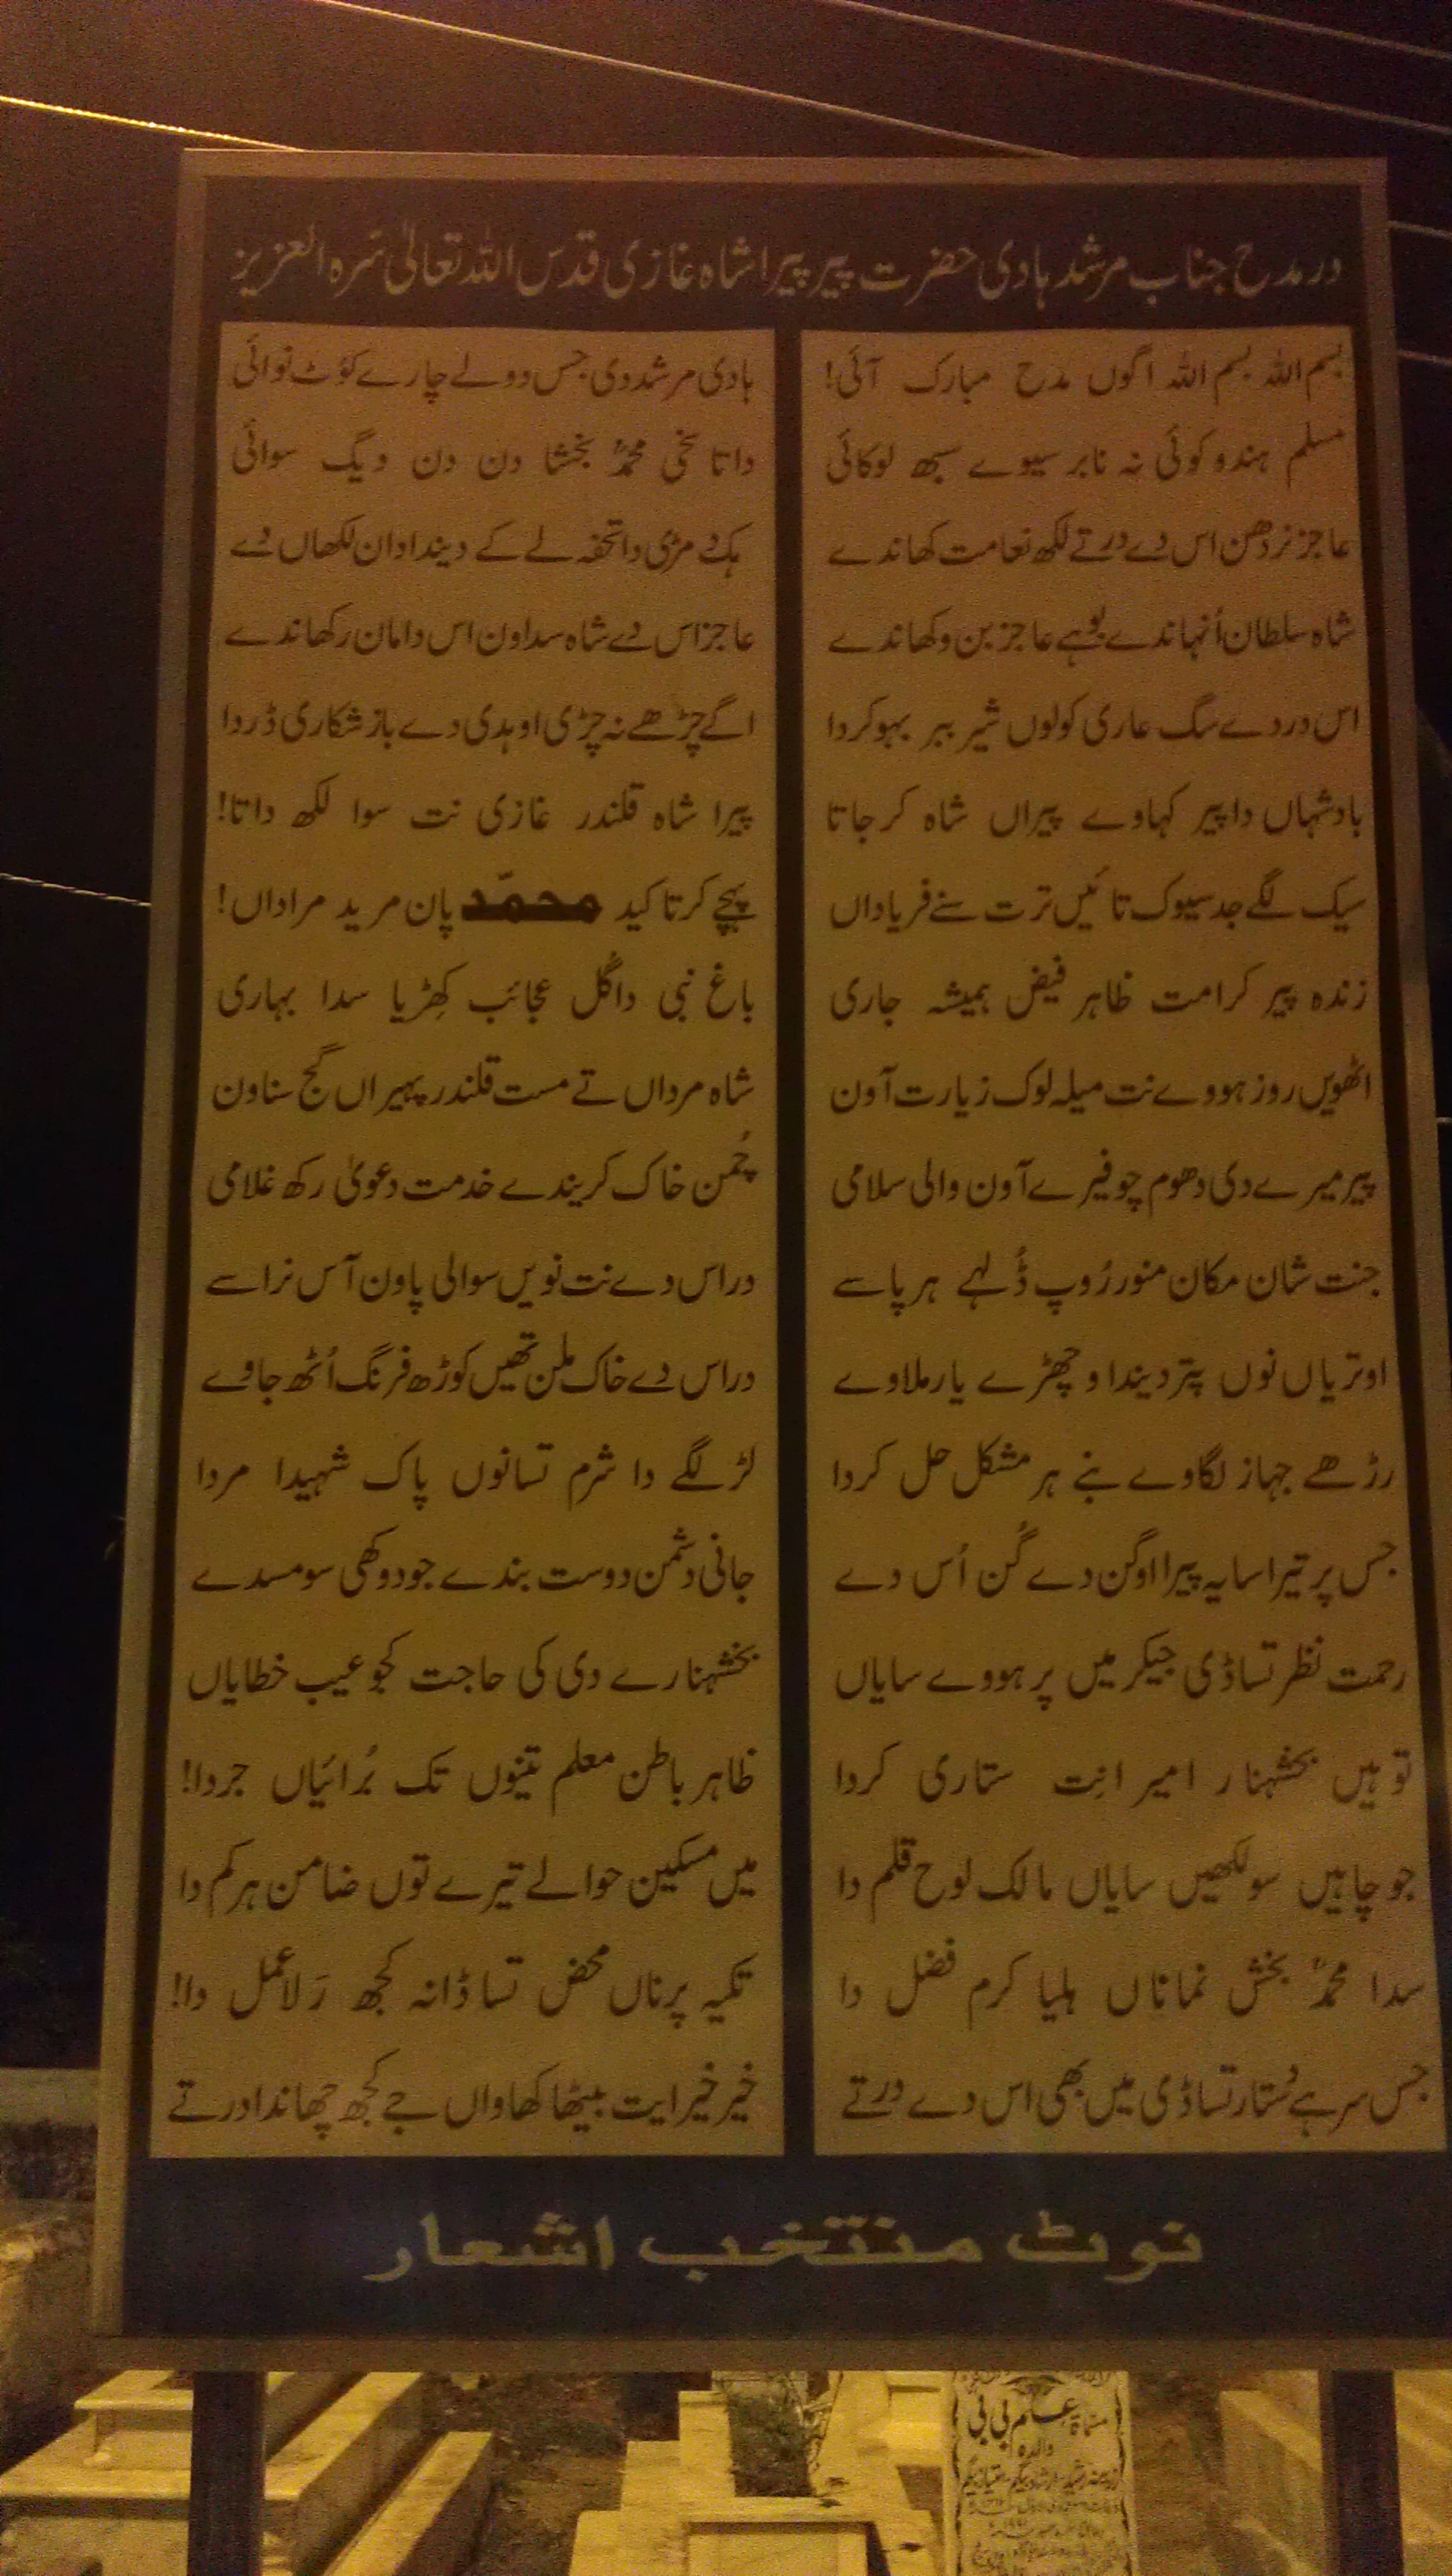 در مدح جناب مرشد ہادی حضرت پیر پیرا شاہ غازی قدس اللہ تعالیٰ سرہ العزیز
بسم اللہ بسم اللہ اگوں مدح مبارک آئی! ہادی مرشد دی جس دولے چارے کوٹ نوائی
مسلم ہندو کوئی نہ نابر سیوے سبھ لوکائی داتا سخی محمدؐ بخشا دن دن دیگ سوائی
عاجز نردھن اس دے درتے لکھ نعامت کھاندے ہک دمڑی دا تحفہ لے کے دیندا دان لکھاں دے
شاہ سلطان اُنہاندے بوہے عاجز بن وکھاندے عاجز اس دے شاہ سداون اس دا مان رکھاندے
اس در دے سگ عاری کولوں شیر ببر بہو کردا اگے چڑھے نہ چڑی اوہدی دے باز شکاری ڈردا
بادشہاں دا پیر کہاوے پیراں شاہ کر جاتا پیرا شاہ قلندر غازی نت سوا لکھ داتا!
سیک لگے جد سیوک تائیں ترت سنے فریاداں پہچے کر تاکید محمّد پان مرید مراداں!
زندہ پیر کرامت ظاہر فیض ہمیشہ جاری باغ نبی دا گُل عجائب کِھڑیا سدا بہاری
اٹھویں روز ہووے نت میلہ لوک زیارت آون شاہ مرداں تے مست قلندر پہیراں گج سناون
پیر میرے دی دھوم چوفیرے آون والی سلامی چُمن خاک کریندے خدمت دعویٰ رکھ غلامی
جنت شان مکان منور رُوپ ڈُلہے ہر پاسے در اس دے نت نویں سوالی پاون آس نراسے
اوتریاں نوں پتر دیندا وچھڑے یار ملاوے در اس دے خاک ملن تھیں کوڑھ فرنگ اُٹھ جاوے
رڑھے جہاز لگاوے بنے ہر مشکل حل کردا لڑ لگے دا شرم تسانوں پاک شہیدا مردا
جس پر تیرا سایہ پیرا اوگن دے گُن اُس دے جانی دشمن دوست بندے جو دوکھی سو مسدے
رحمت نظر تساڈی جیکر میں پر ہووے سایاں بخشہنارے دی کی حاجت کجو عیب خطایاں
توہیں بخشہنار امیرا نِت ستاری کردا ظاہر باطن معلم تینوں تک بُرائیاں جردا!
جو چاہیں سو لکھیں سایاں مالک لوح قلم دا میں مسکین حوالے تیرے توں ضامن ہر کم دا
سدا محمدؐ بخش نماناں ہلیا کرم فضل دا تکیہ پرناں محض تساڈا نہ کجھ رَلا عمل دا!
جس سر ہے دستار تساڈی میں بھی اس دے درتے خیر خیرایت بیٹھا کھاواں جے کجھ چھاندا درتے
نوٹ منتخب اشعار
عالم بی بی
والدہ